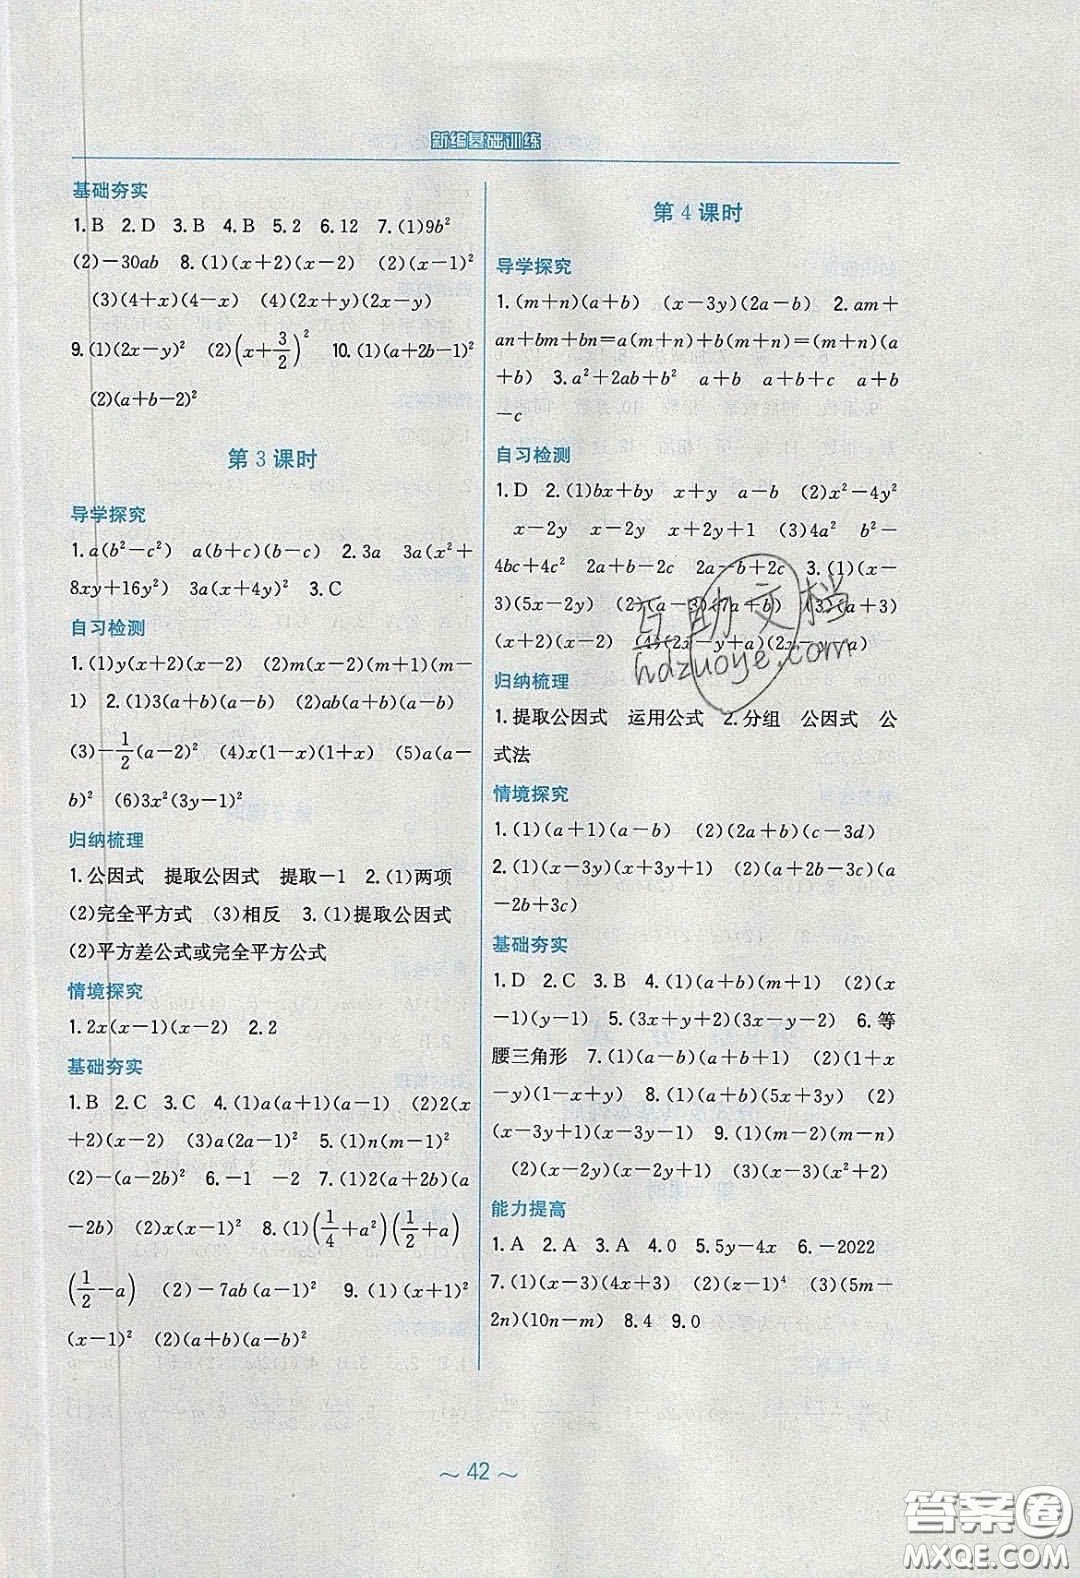 新编基础训练
基础夯实
1.B 2.D 3.B 4.B 5.2 6.12 7.(1)9b²
(2)-30ab 8.(1)(x+2)(x-2) (2)(x-1)²
(3)(4+x)(4-x) (4)(2x+y)(2x-y)
9.(1)(2x-y)² (2)(x+3/2)² 10.(1)(a+2b-1)²
(2)(a+b-2)²
第3课时
导学探究
1.a(b²-c²) a(b+c)(b-c) 2.3a 3a(x²+
8xy+16y²) 3a(x+4y)² 3.C
自习检测
1.(1)y(x+2)(x-2) (2)m(x-2)(m+1)(m-
1) 2.(1)3(a+b)(a-b) (2)ab(a+b)(a-b)
(3)-1/2(a-2)² (4)x(1-x)(1+x) (5)a(a-
b)² (6)3x²(3y-1)²
归纳梳理
1.公因式 提取公因式 提取-1 2.(1)两项
(2)完全平方式 (3)相反 3.(1)提取公因式
(2)平方差公式或完全平方公式
情境探究
1.2x(x-1)(x-2) 2.2
基础夯实
1.B 2.C 3.C 4.(1)a(a+1)(a-1) (2)2(x
+2)(x-2) (3)a(2a-1)² 5.(1)n(m-1)²
(2)-(a-2b)² 6.-1 -2 7.(1)2b(a+2b)(a
-2b) (2)x(x-1)² 8.(1)(1/4+a²)(1/2+a)
(1/2-a) (2)-7ab(a-1)² 9.(1)(x+1)²
(x-1)² (2)(a+b)(a-b)²
第4课时
导学探究
1.(m+n)(a+b) (x-3y)(2a-b) 2.am+
an+bm+bn=a(m+n)+b(m+n)=(m+n)(a
+b) 3.a²+2ab+b² a+b a+b+c a+b
-c
自习检测
1.D 2.(1)bx+by x+y a-b (2)x²-4y²
x-2y x-2y x+2y+1 (3)4a² b²-
4bc+4c² 2a+b-2c 2a-b+2c 3.(1)(x-
3)(5x-2y) (2)(a-3)(7a+b) (3)(a+3)
(x+2)(x-2) (4)(2x-y+a)(2x-y-a)
归纳梳理
1.提取公因式 运用公式 2.分组 公因式 公
式法
情境探究
1.(1)(a+1)(a-b) (2)(2a+b)(c-3d)
2.(1)(x-3y)(x+3y+1) (2)(a+2b-3c)(a
-2b+3c)
基础夯实
1.D 2.C 3.B 4.(1)(a+b)(m+1) (2)(x
-1)(y-1) 5.(3x+y+2)(3x-y-2) 6.等
腰三角形 7.(1)(a-b)(a+b+1) (2)(1+x
-y)(1-x+y) 8.(1)(a+b)(5x+3y) (2)
(x-3y+1)(x-3y-1) 9.(1)(m-2)(m-n)
(2)(x-2y)(x-2y+1) (3)(x-3)(x²+2)
能力提高
1.A 2.A 3.A 4.0 5.5y-4x 6.-2022
7.(1)(x-3)(4x+3) (2)(z-1)⁴ (3)(5m-
2n)(10n-m) 8.4 9.0
互助文档
hdzuoye.com
~ 42 ~
答案圈
MXQE.COM